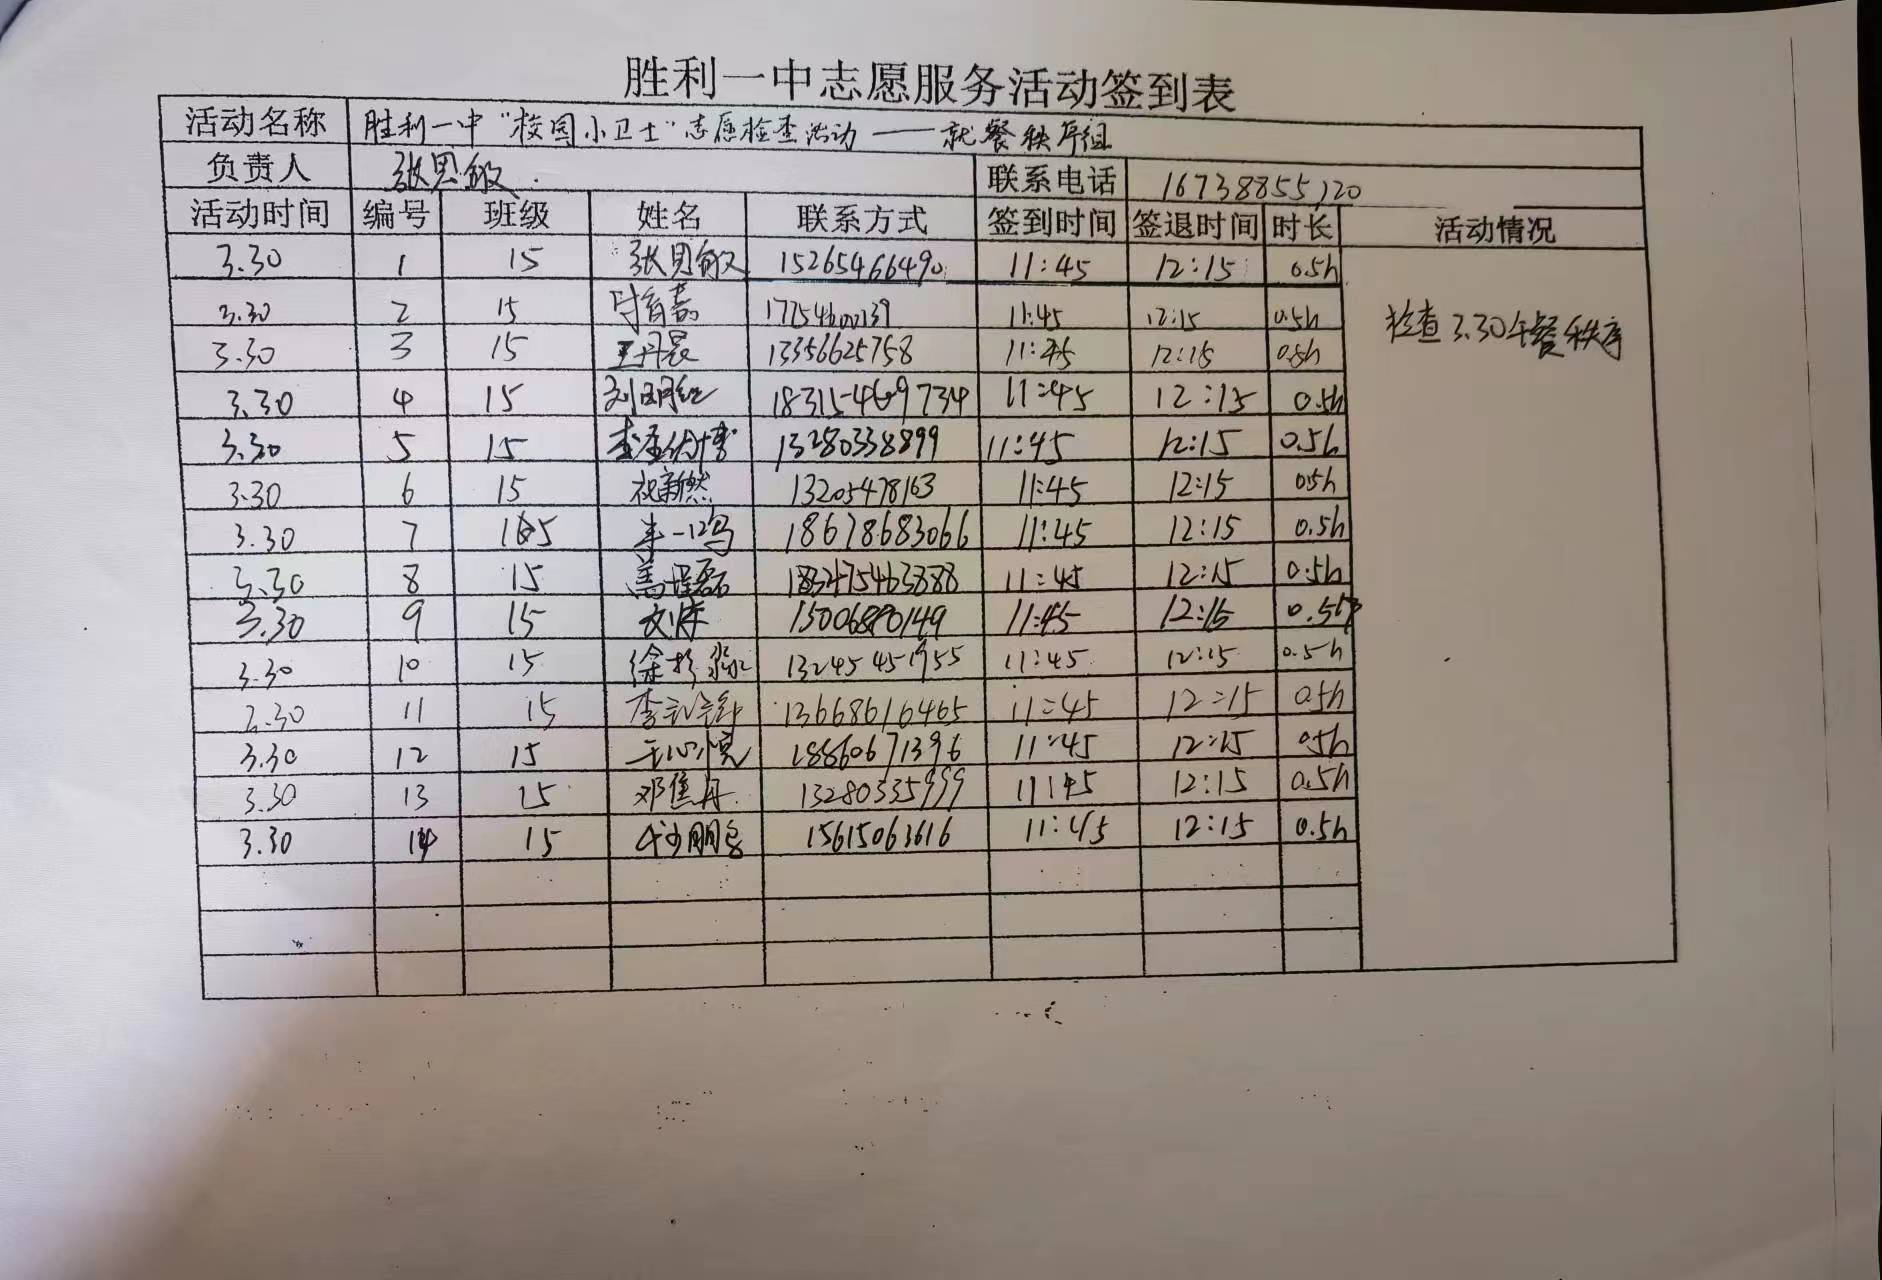 胜利一中志愿服务活动签到表
活动名称 胜利一中“校园小卫士”志愿检查活动——就餐秩序组
负责人 张思敏 联系电话 16738855120
活动时间 编号 班级 姓名 联系方式 签到时间 签退时间 时长 活动情况
3.30 1 15 张思敏 15265466490 11:45 12:15 0.5h
检查3.30午餐秩序
3.30 2 15 11:45 12:15 0.5h
3.30 3 15 王丹晨 13356625758 11:45 12:15 0.5h
3.30 4 15 11:45 12:15 0.5h
3.30 5 15 13280338899 11:45 12:15 0.5h
3.30 6 15 祝新然 13205478163 11:45 12:15 0.5h
3.30 7 15 18678683066 11:45 12:15 0.5h
3.30 8 15 11:45 12:15 0.5h
3.30 9 15 11:45 12:15 0.5h
3.30 10 15 11:45 12:15 0.5h
3.30 11 15 13668616465 11:45 12:15 0.5h
3.30 12 15 18860671396 11:45 12:15 0.5h
3.30 13 15 邓焦丹 13280335999 11:45 12:15 0.5h
3.30 14 15 15615063616 11:45 12:15 0.5h